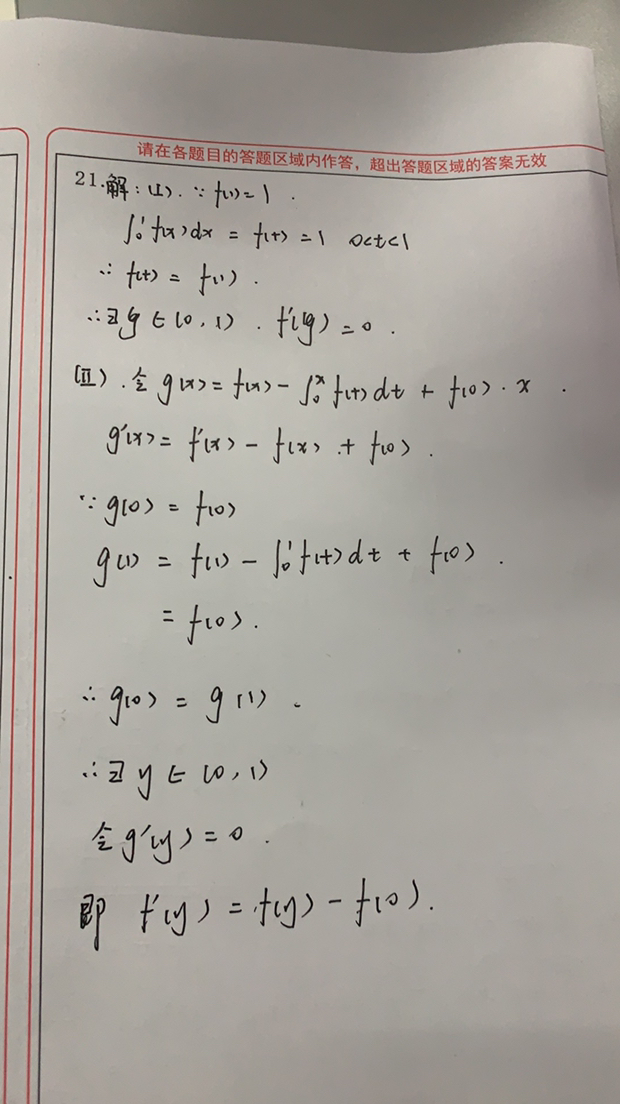 请在各题目的答题区域内作答，超出答题区域的答案无效
21.解：(I). ∵ f(1)=1 .
∫₀¹ f(x)dx = f(t) = 1 0<t<1
∴ f(t) = f(1) .
∴ ∃ ξ ∈ (0, 1) . f'(ξ) = 0 .
(II) . 令 g(x) = f(x) - ∫₀ˣ f(t) dt + f(0) · x .
g'(x) = f'(x) - f(x) + f(0) .
∵ g(0) = f(0)
g(1) = f(1) - ∫₀¹ f(t) dt + f(0) .
= f(0) .
∴ g(0) = g(1) .
∴ ∃ y ∈ (0, 1)
令 g'(y) = 0 .
即 f'(y) = f(y) - f(0) .